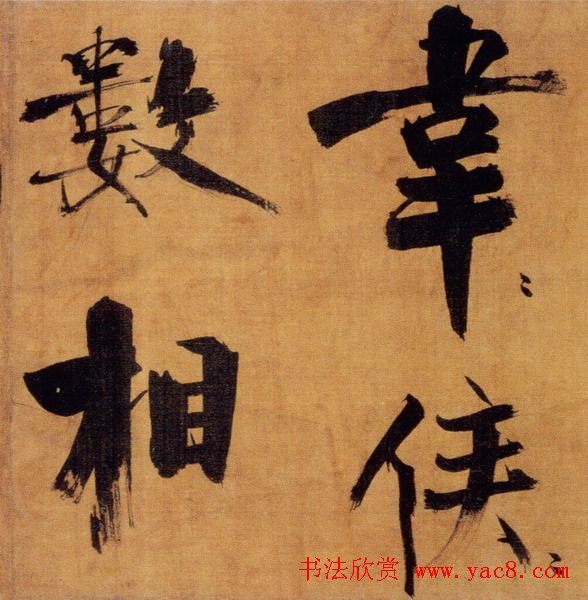 韋〻侯〻
數相
书法欣赏 www.yac8.com